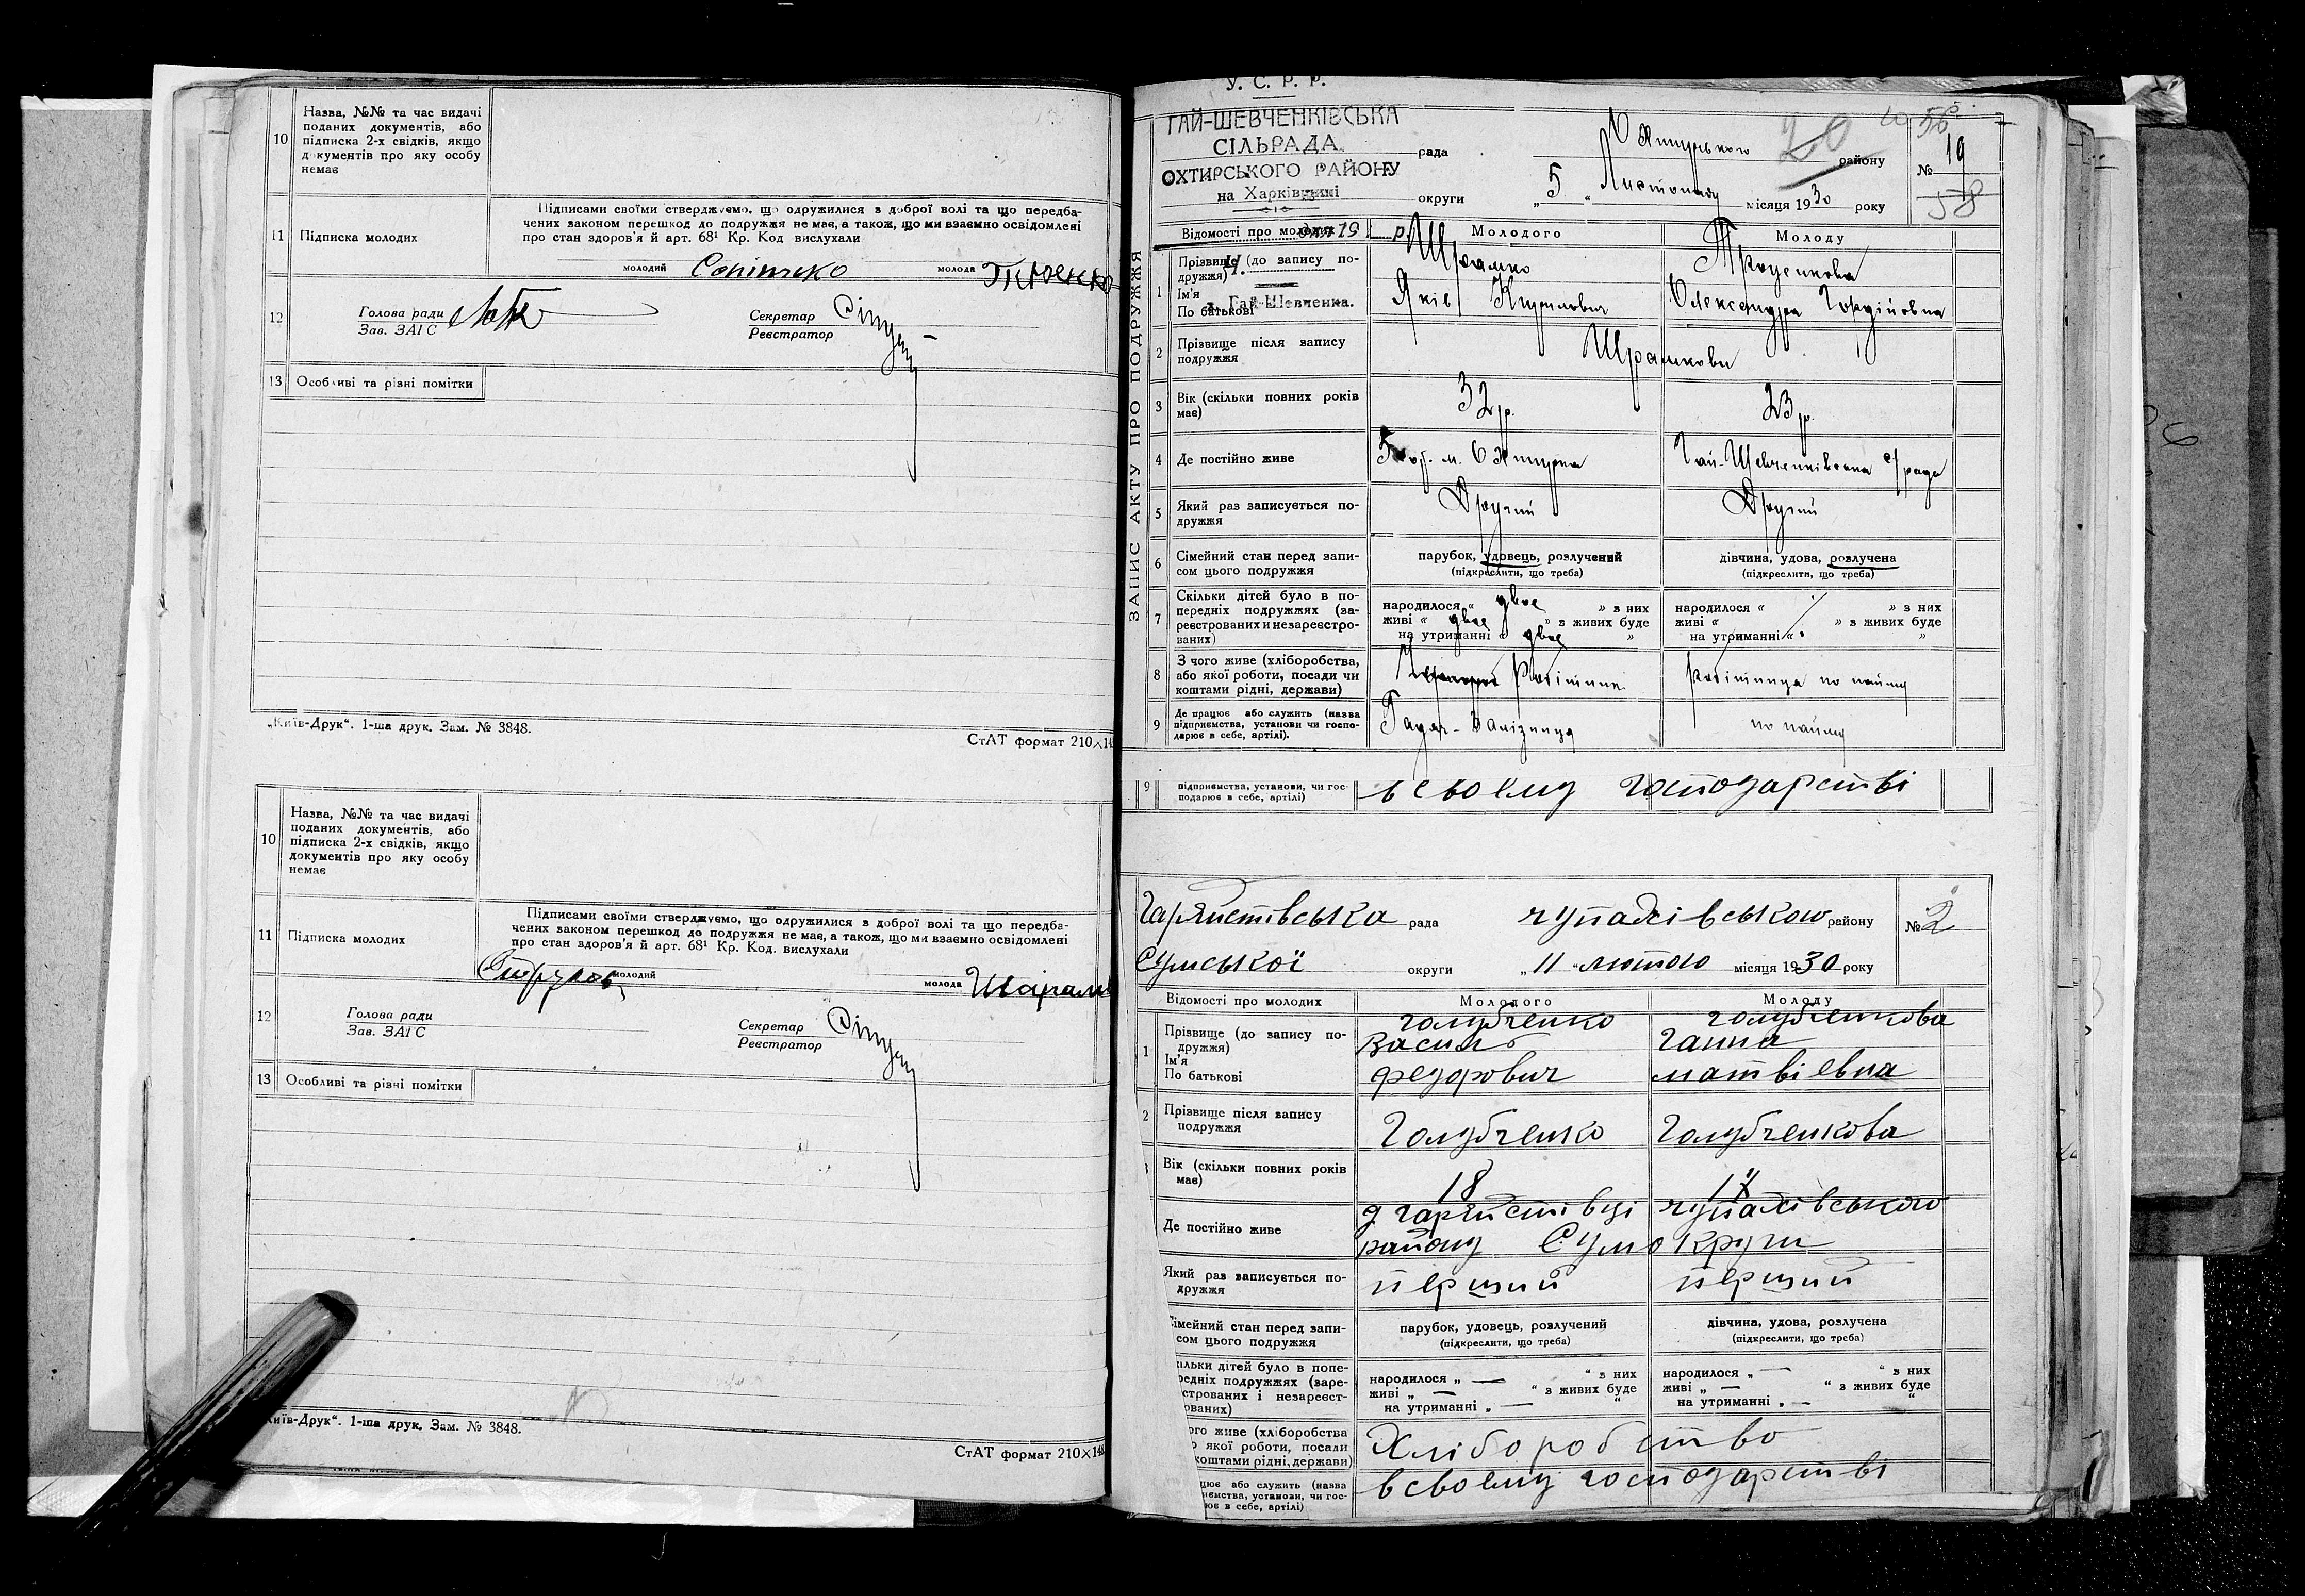 10
Назва, №№ та час видачі
поданих документів, або
підписка 2-х свідків, якщо
документів про яку особу
немає
11
Підписка молодих
Підписами своїми стверджуємо, що одружилися з доброї волі та що передба-
чених законом перешкод до подружжя не має, а також, що ми взаємно освідомлені
про стан здоров'я й арт. 68¹ Кр. Код вислухали
молодий
молода
12
Голова ради
Зав. ЗАГС
Секретар
Реєстратор
13 Особливі та різні помітки
„Київ-Друк“. 1-ша друк. Зам. № 3848.
СтАТ формат 210×14
10
Назва, №№ та час видачі
поданих документів, або
підписка 2-х свідків, якщо
документів про яку особу
немає
11
Підписка молодих
Підписами своїми стверджуємо, що одружилися з доброї волі та що передба-
чених законом перешкод до подружжя не має, а також, що ми взаємно освідомлені
про стан здоров'я й арт. 68¹ Кр. Код. вислухали
молодий
молода
12
Голова ради
Зав. ЗАГС
Секретар
Реєстратор
13 Особливі та різні помітки
Київ-Друк“. 1-ша друк. Зам. № 3848.
СтАТ формат 210×148
У. С. Р. Р.
ЗАПИС АКТУ ПРО ПОДРУЖЖЯ
ГАЙ-ШЕВЧЕНКІВСЬКА
СІЛЬРАДА
ОХТИРСЬКОГО РАЙОНУ
на Харківщині
х. Гай Шевченка.
рада Охтирського району
20
56
№ 19
58
округи „5“ Листопаду місяця 1930 року
Відомості про молодих
Молодого
Молоду
1
Прізвище (до запису по-
дружжя)
Ім'я
По батькові
Шрамко
Яків Кирилович
Троценкова
Олександра Гордійовна
2
Прізвище після запису
подружжя
Шрамкови
3
Вік (скільки повних років
має)
32 р.
23 р.
4
Де постійно живе
м. Охтирка
Гай-Шевченківська с/рада
5
Який раз записується по-
дружжя
Другий
Другий
6
Сімейний стан перед запи-
сом цього подружжя
парубок, удовець, розлучений
(підкреслити, що треба)
дівчина, удова, розлучена
(підкреслити, що треба)
7
Скільки дітей було в по-
передніх подружжях (за-
реєстрованих и незареєстро-
ваних)
народилося „ двоє » з них
живі „ двоє » з живих буде
на утриманні „ двоє »
народилося „ » з них
живі „ » з живих буде
на утриманні „ »
8
З чого живе (хліборобства,
або якої роботи, посади чи
коштами рідні, держави)
Робітник
робітниця по найму
9
Де працює або служить (назва
підприємства, установи чи госпо-
дарює в себе, артілі).
Гадяч-Залізниця
по найму
9
підприємства, установи, чи гос-
подарює в себе, артілі)
в своему господарстві
рада
чупахівського району
№ 2
Сумської округи „11“ лютого місяця 1930 року
Відомості про молодих
Молодого
Молоду
1
Прізвище (до запису по-
дружжя)
Ім'я
По батькові
голубченко
Василь
федорович
голубченкова
Ганна
матвіевна
2
Прізвище після запису
подружжя
Голубченко
Голубченкова
Вік (скільки повних років
має)
18
Де постійно живе
чупахівського
району Сумокруги
Який раз записується по-
дружжя
перший
перший
Сімейний стан перед запи-
сом цього подружжя
парубок, удовець, розлучений
(підкреслити, що треба)
дівчина, удова, розлучена
(підкреслити, що треба)
ільки дітей було в попе-
редніх подружжях (заре-
єстрованих і незареєст-
ованих)
народилося „ — “ з них
живі „ — “ з живих буде
на утриманні „ — “
народилося „ — “ з них
живі „ — “ з живих буде
на утриманні „ — “
ого живе (хліборобства
якої роботи, посади
коштами рідні, держави)
Хліборобство
цює або служить (назва
иємства, установи, чи гос-
ює в себе, артілі)
в своему господарстві